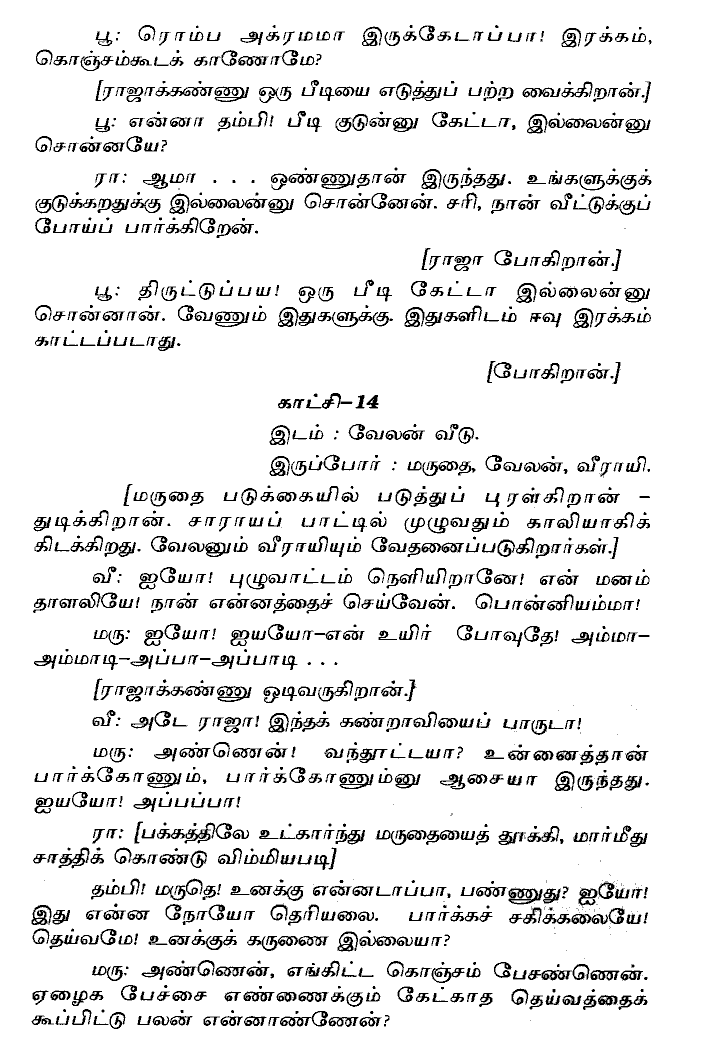 பூ: ரொம்ப அக்ரமமா இருக்கேடாப்பா! இரக்கம்,
கொஞ்சம்கூடக் காணோமே?
[ராஜாக்கண்ணு ஒரு பீடியை எடுத்துப் பற்ற வைக்கிறான்.]
பூ: என்னா தம்பி! பீடி குடுன்னு கேட்டா, இல்லைன்னு
சொன்னயே?
ரா: ஆமா . . . ஒண்ணுதான் இருந்தது. உங்களுக்குக்
குடுக்கறதுக்கு இல்லைன்னு சொன்னேன். சரி, நான் வீட்டுக்குப்
போய்ப் பார்க்கிறேன்.
[ராஜா போகிறான்.]
பூ: திருட்டுப்பய! ஒரு பீடி கேட்டா இல்லைன்னு
சொன்னான். வேணும் இதுகளுக்கு. இதுகளிடம் ஈவு இரக்கம்
காட்டப்படாது.
[போகிறான்.]
காட்சி–14
இடம் : வேலன் வீடு.
இருப்போர் : மருதை, வேலன், வீராயி.
[மருதை படுக்கையில் படுத்துப் புரள்கிறான் –
துடிக்கிறான். சாராயப் பாட்டில் முழுவதும் காலியாகிக்
கிடக்கிறது. வேலனும் வீராயியும் வேதனைப்படுகிறார்கள்.]
வீ: ஐயோ! புழுவாட்டம் நெளியிறானே! என் மனம்
தாளலியே! நான் என்னத்தைச் செய்வேன். பொன்னியம்மா!
மரு: ஐயோ! ஐயயோ–என் உயிர் போவுதே! அம்மா–
அம்மாடி–அப்பா–அப்பாடி . . .
[ராஜாக்கண்ணு ஓடிவருகிறான்.]
வீ: அடே ராஜா! இந்தக் கண்றாவியைப் பாருடா!
மரு: அண்ணென்! வந்தூட்டயா? உன்னைத்தான்
பார்க்கோணும், பார்க்கோணும்னு ஆசையா இருந்தது.
ஐயயோ! அப்பப்பா!
ரா: [பக்கத்திலே உட்கார்ந்து மருதையைத் தூக்கி, மார்மீது
சாத்திக் கொண்டு விம்மியபடி]
தம்பி! மருதெ! உனக்கு என்னடாப்பா, பண்ணுது? ஐயோ!
இது என்ன நோயோ தெரியலை. பார்க்கச் சகிக்கலையே!
தெய்வமே! உனக்குக் கருணை இல்லையா?
மரு: அண்ணென், எங்கிட்ட கொஞ்சம் பேசண்ணென்.
ஏழைக பேச்சை எண்ணைக்கும் கேட்காத தெய்வத்தைக்
கூப்பிட்டு பலன் என்னாண்ணேன்?